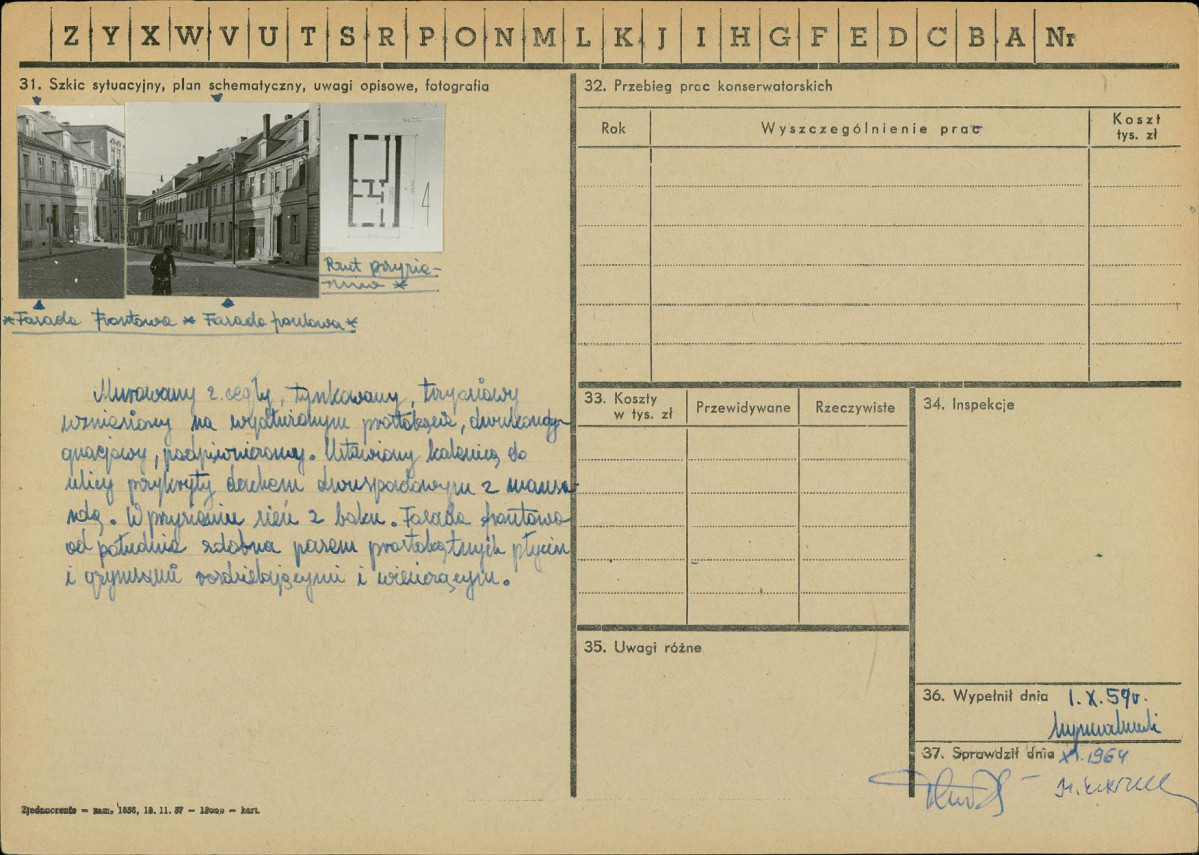 Z Y X W V U T S R P O N M L K J I H G F E D C B A Nr
31. Szkic sytuacyjny, plan schematyczny, uwagi opisowe, fotografia
Rzut przyzie-
mia *
* Fasada frontowa * Fasada frontowa *
Murowany z cegły, tynkowany,
wzniesiony na wydłużonym prostokącie, dwukondy-
gnacjowy, podpiwniczony. Ustawiony kalenicą do
ulicy przykryty dachem dwuspadowym z mansa-
rdą. W przyziemiu sień z boku. Fasada frontowa
od południa zdobna pasem prostokątnych płycin
i gzymsami rozdzielającymi i wieńczącym.
Zjednoczenie — zam. 1858, 18. 11. 57 — 12000 — kart.
32. Przebieg prac konserwatorskich
Rok
Wyszczególnienie prac
Koszt
tys. zł
33. Koszty
w tys. zł
Przewidywane
Rzeczywiste
34. Inspekcje
35. Uwagi różne
36. Wypełnił dnia 1. X. 59r.
37. Sprawdził dnia XI. 1964